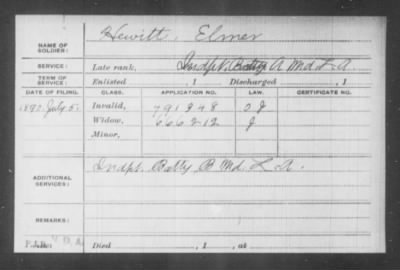 Hewitt, Elmer
NAME OF SOLDIER:
SERVICE: Late rank, Indpt. Batty A Md. L. A.
TERM OF SERVICE: Enlisted , 1 Discharged , 1
DATE OF FILING. CLASS. APPLICATION NO. LAW. CERTIFICATE NO.
1890 July 5. Invalid, 791848 O J
Widow, 666212 J
Minor,
Indpt. Batty B Md. L. A.
ADDITIONAL SERVICES:
REMARKS:
Died , 1 , at